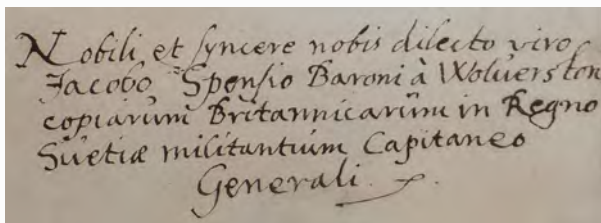 Nobili et syncere nobis dilecto viro
Jacobo Spensio Baroni à Wolverston
copiarum Britannicarum in Regno
Suetiæ militantium Capitaneo
Generali.